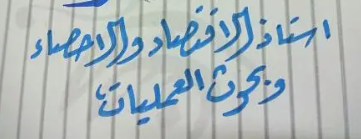 استاذ الاقتصاد والاحصاء
وبحوث العمليات